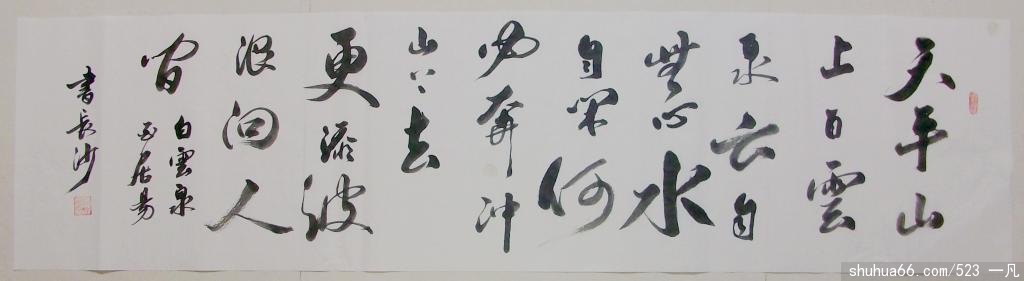 天平山
上白雲
泉云自
無心水
自闲何
必奔冲
山下去
更添波
浪向人
间
白雲泉
白居易
書長沙
shuhua66.com/523 一凡